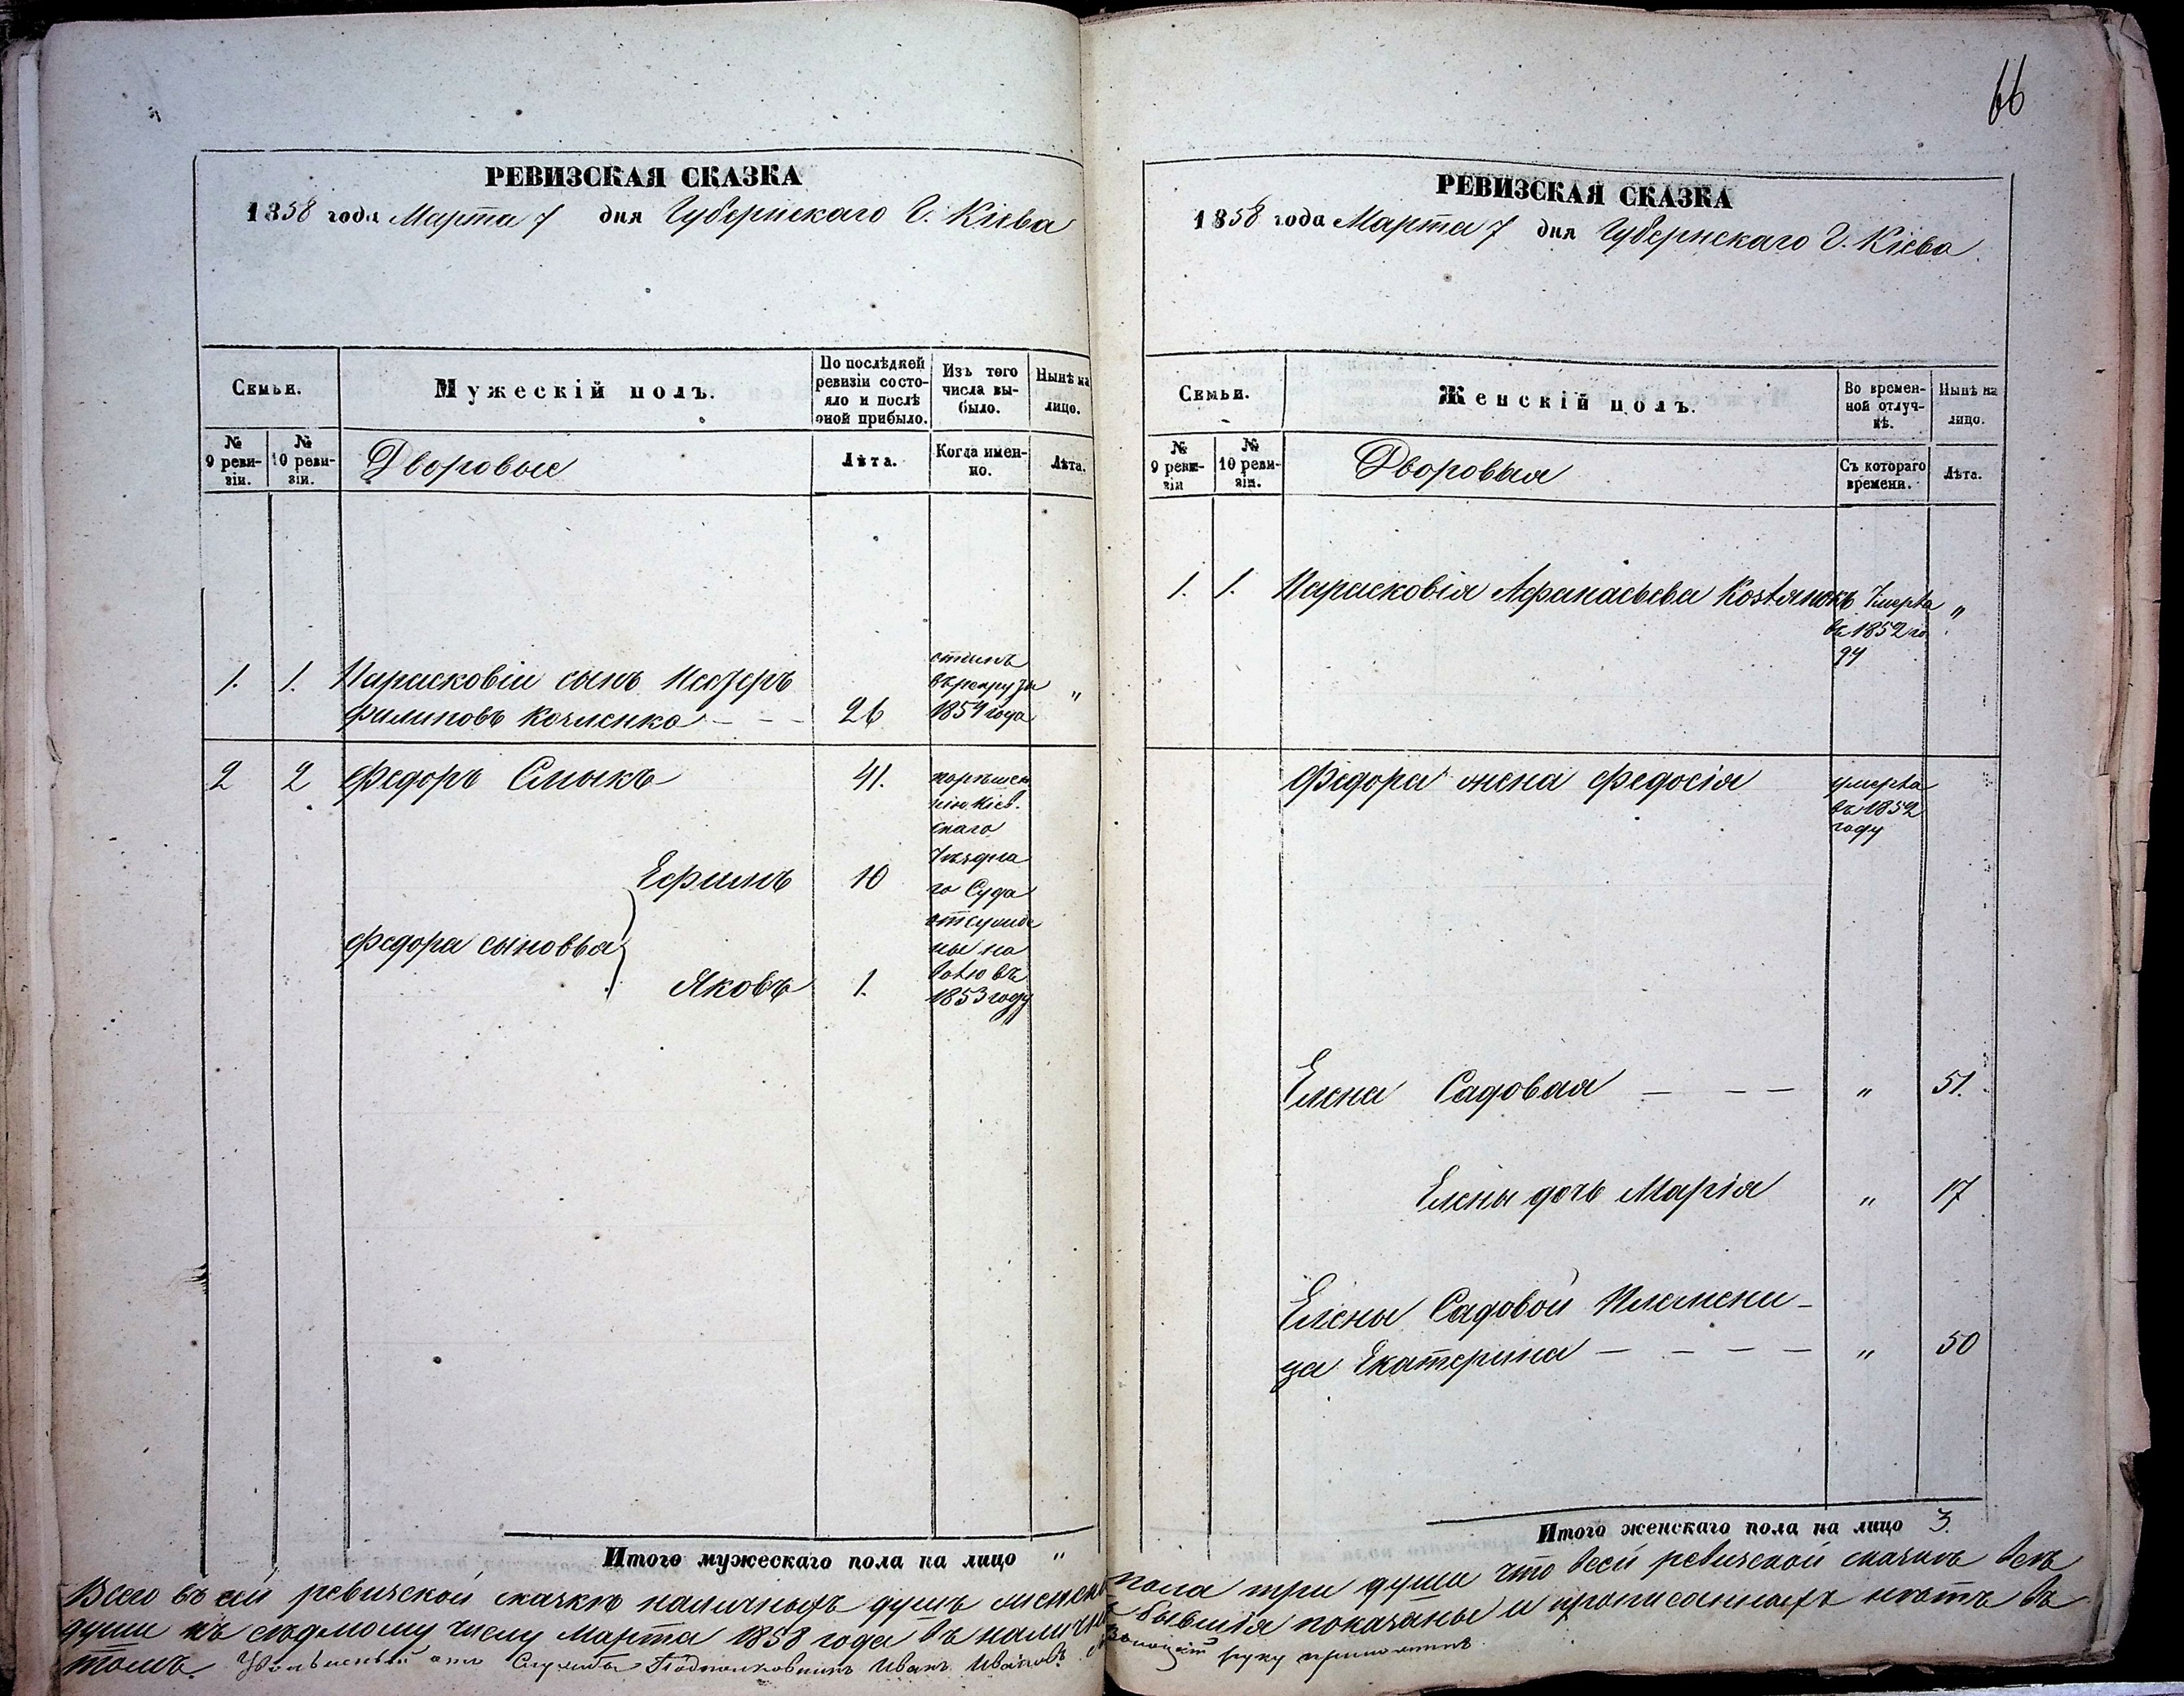 РЕВИЗСКАЯ СКАЗКА
1858 года Марта 7 дня Губернскаго Г. Кіева
Семьи.
Мужескій полъ.
По послѣдней
ревизіи состо-
яло и послѣ
оной прибыло.
Изъ того
числа вы-
было.
Нынѣ на
лицо.
№
9 реви-
зіи.
№
10 реви-
зіи.
Дворовые
Лѣта.
Когда имен-
но.
Лѣта.
1. 1. Парасковіи сынъ
Филиповъ 26
въ рекруты
1854 года "
2 2 Федоръ Смыкъ 41.
порѣшен
нію Кіев.
скаго
Уѣздна
го Суда
отсужде
ны на
волю въ
1853 году
Ефимъ 10
Федора сыновья
Яковъ 1.
Итого мужескаго пола на лицо "
66
РЕВИЗСКАЯ СКАЗКА
1858 года Марта 7 дня Губернскаго Г. Кіева
Семьи.
Женскій полъ.
Во времен-
ной отлуч-
кѣ.
Нынѣ на
лицо.
№
9 реви-
зіи
№
10 реви-
зіи.
Дворовыя
Съ котораго
времени.
Лѣта.
1. 1. Парасковія Афанасьева
Умерла
въ 1852 го
"
Федора жена Федосія
умерла
въ 1852
году
Елена Садовая — — — " 51.
Елены дочь Марія " 17
Елены Садовой Племени-
ца Екатерина — — — — " 50
Итого женскаго пола на лицо 3.
Всего въ сей ревизской сказкѣ наличныхъ душъ женска пола три души что всей ревизской сказкѣ всѣ
души къ седмому числу Марта 1858 года въ наличн бывшія показаны и прописанныхъ нѣтъ въ
томъ. Уволенный отъ Службы Подполковникъ Иванъ Ивановъ руку приложилъ.